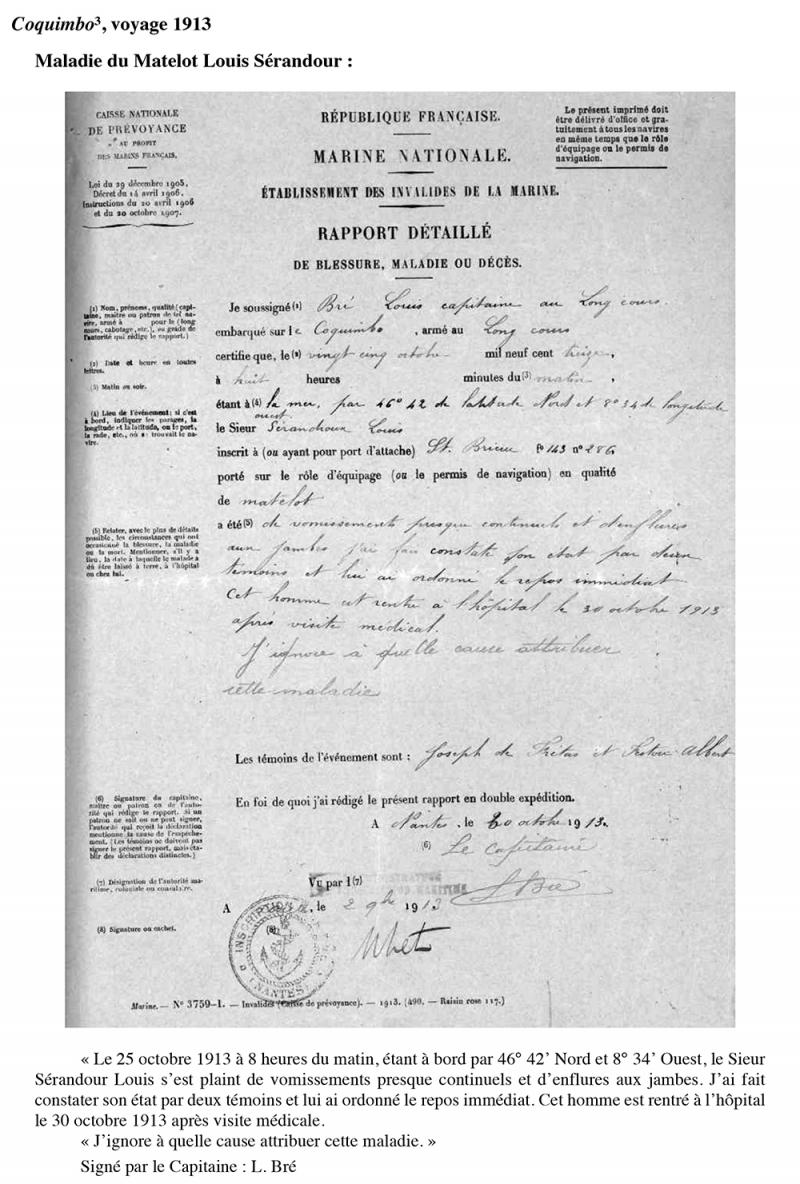 Coquimbo³, voyage 1913
Maladie du Matelot Louis Sérandour :
CAISSE NATIONALE
DE PRÉVOYANCE
AU PROFIT
DES MARINS FRANÇAIS.
Loi du 29 décembre 1905,
Décret du 14 avril 1906,
Instructions du 20 avril 1906
et du 20 octobre 1907.
RÉPUBLIQUE FRANÇAISE.
MARINE NATIONALE.
ÉTABLISSEMENT DES INVALIDES DE LA MARINE.
RAPPORT DÉTAILLÉ
DE BLESSURE, MALADIE OU DÉCÈS.
Le présent imprimé doit
être délivré d'office et gra-
tuitement à tous les navires
en même temps que le rôle
d'équipage ou le permis de
navigation.
(1) Nom, prénoms, qualité (capi-
taine, maître ou patron de tel na-
vire, armé à pour le (long
cours, cabotage, etc.), ou grade de
l'autorité qui rédige le rapport.)
(2) Date et heure en toutes
lettres.
(3) Matin ou soir.
(4) Lieu de l'événement: si c'est
à bord, indiquer les parages, la
longitude et la latitude, ou le port,
la rade, etc., où se trouvait le na-
vire.
(5) Relater, avec le plus de détails
possible, les circonstances qui ont
occasionné la blessure, la maladie
ou la mort. Mentionner, s'il y a
lieu, la date à laquelle le malade a
dû être laissé à terre, à l'hôpital
ou chez lui.
Je soussigné (1) Bré Louis capitaine au Long cours.
embarqué sur le Coquimbo, armé au Long cours
certifie que, le (2) vingt cinq octobre mil neuf cent treize,
à huit heures minutes du (3) matin,
étant à (4) la mer, par 46° 42 de latitude Nord et 8° 34 de longitude
ouest.
le Sieur Sérandour Louis
inscrit à (ou ayant pour port d'attache) St. Brieuc fo 143 no 286
porté sur le rôle d'équipage (ou le permis de navigation) en qualité
de matelot
a été (5) de vomissements presque continuels et d'enflures
aux jambes j'ai fait constaté son état par deux
témoins et lui ai ordonné le repos immédiat
Cet homme est rentré à l'hôpital le 30 octobre 1913
après visite médical.
J'ignore à quelle cause attribuer
cette maladie
Les témoins de l'événement sont : Joseph de Albert
(6) Signature du capitaine,
maître ou patron ou de l'auto-
rité qui rédige le rapport. Si un
patron ne sait ou ne peut signer,
l'autorité qui reçoit la déclaration
mentionne la cause de l'empêche-
ment. (Les témoins ne doivent pas
signer le présent rapport, mais éta-
blir des déclarations distinctes.)
(7) Désignation de l'autorité ma-
ritime, coloniale ou consulaire.
(8) Signature ou cachet.
En foi de quoi j'ai rédigé le présent rapport en double expédition.
A Nantes, le 30 octobre 1913.
(6) Le capitaine
LBré
Vu par l (7)
A , le 2 9bre 1913
(8)
INSCRIPTION
NANTES
Marine. — No 3759-1. — Invalides (Caisse de prévoyance). — 1913. (490. — Raisin rose 117.)
« Le 25 octobre 1913 à 8 heures du matin, étant à bord par 46° 42’ Nord et 8° 34’ Ouest, le Sieur
Sérandour Louis s’est plaint de vomissements presque continuels et d’enflures aux jambes. J’ai fait
constater son état par deux témoins et lui ai ordonné le repos immédiat. Cet homme est rentré à l’hôpital
le 30 octobre 1913 après visite médicale.
« J’ignore à quelle cause attribuer cette maladie. »
Signé par le Capitaine : L. Bré